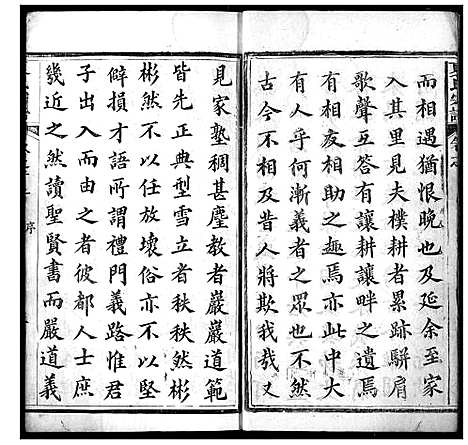 而相遇猶恨晚也及延余至家
入其里見夫樸耕者累跡駢肩
歌聲互答有讓耕讓畔之遺焉
友有相助之趣焉亦此中大
有人乎何漸義者之眾也不然
古今不相及昔人將欺我哉又
見家塾稠甚塵教者嚴嚴道範
皆先正典型雪立者秩秩然彬
彬然不以任放壞俗亦不以堅
僻損才語所謂禮門義路惟君
子出入而由之者彼都人士庶
幾近之然讀聖賢書而嚴道義
序